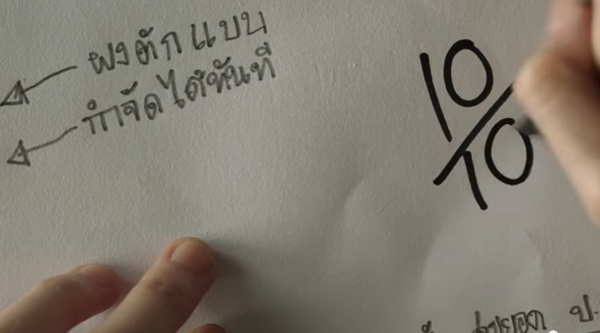 ผงตักแบบ
กำจัดได้ทันที
10/10
ป.